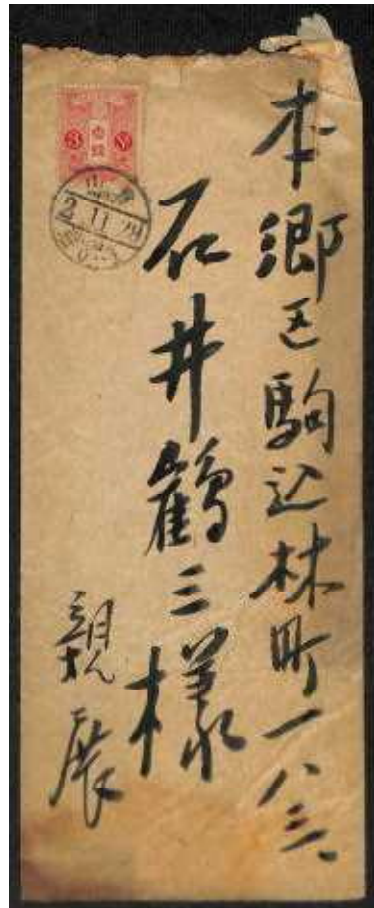 本郷区駒込林町一八三、
石井鶴三様
親展
3
2.11.29